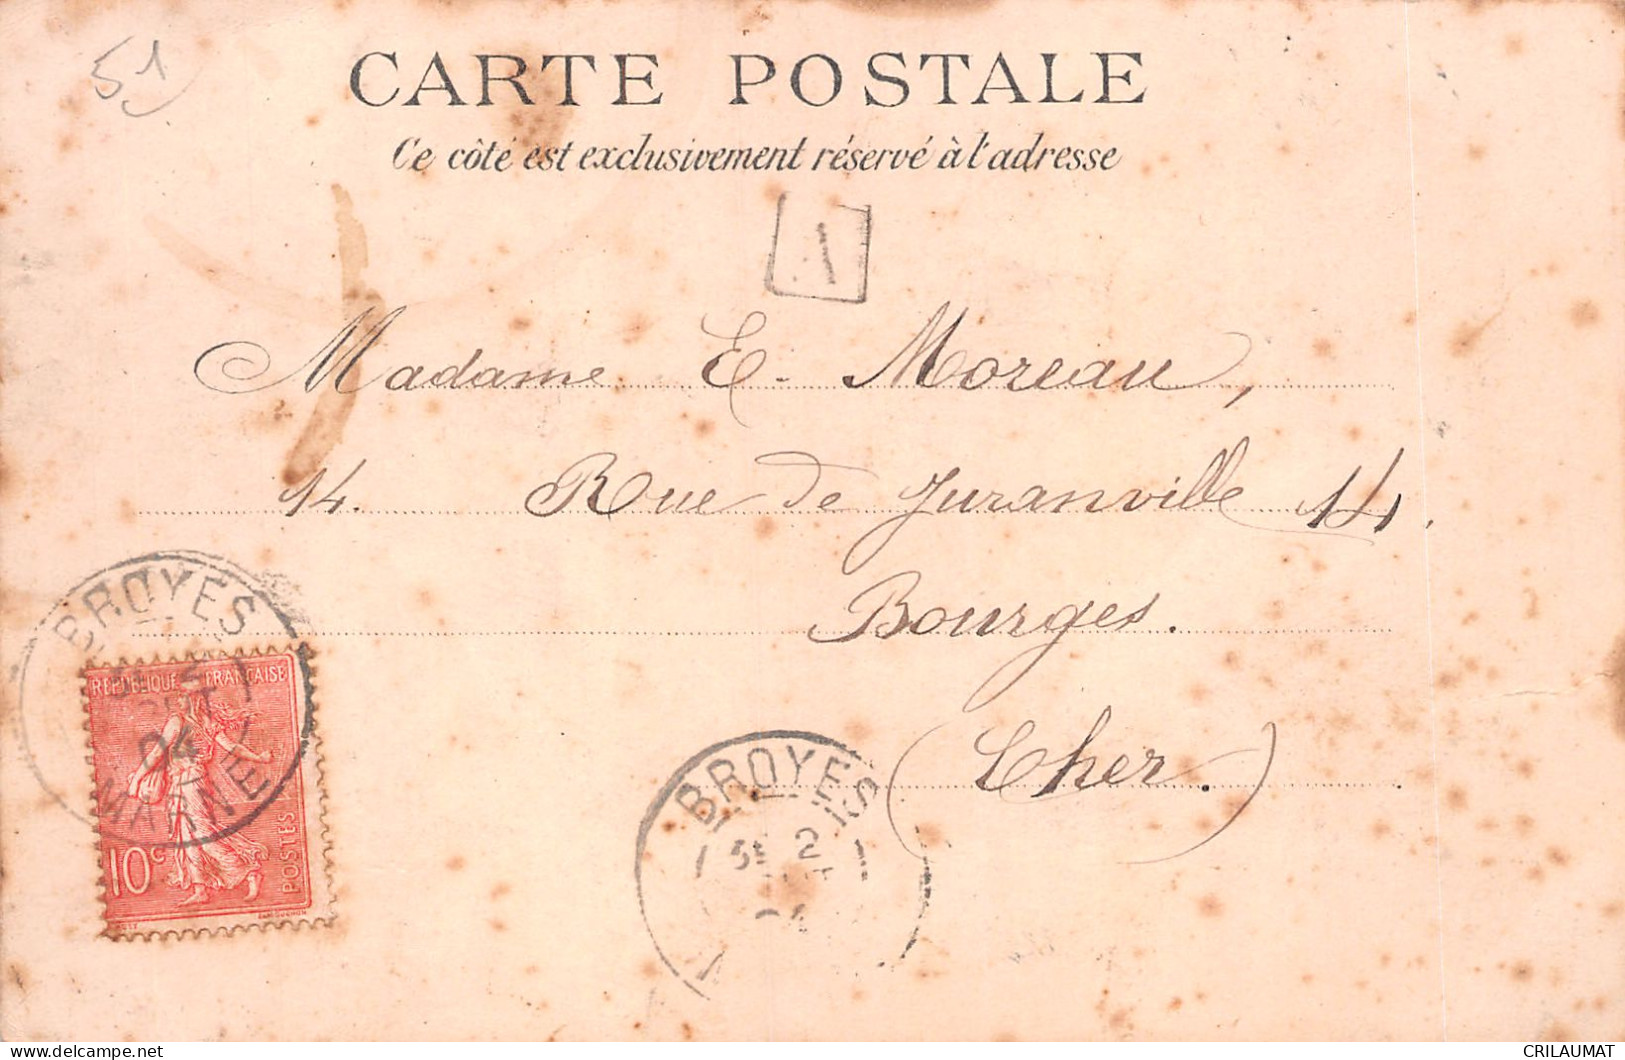 51
CARTE POSTALE
Ce côté est exclusivement réservé à l'adresse
1
Madame E. Moreau,
14. Rue de Juranville 14.
Bourges.
(Cher.)
BROYES
04
MARNE
REPUBLIQUE FRANÇAISE
10c
POSTES
BROYES
2
04
CRILAUMAT